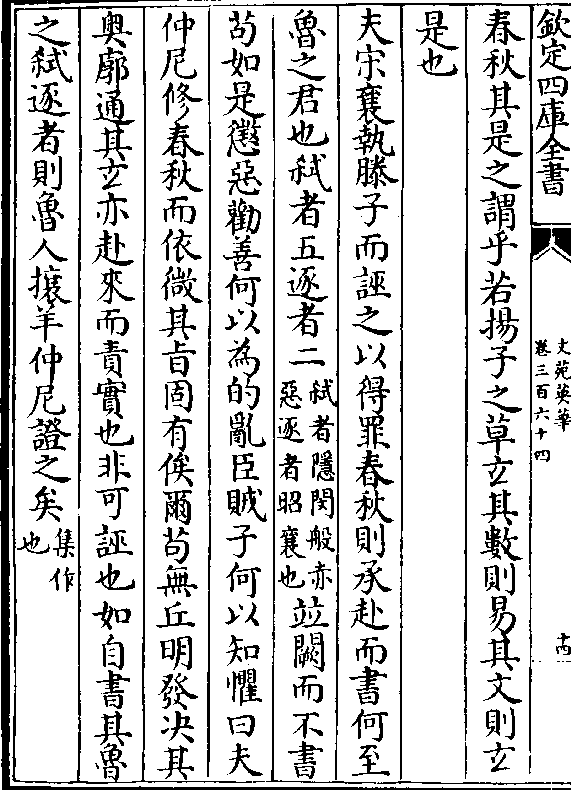 欽定四庫全書
文苑英華
卷三百六十四
十四
春秋其是之謂乎若揚子之草𤣥其數則易其文則𤣥
是也
夫宋襄執滕子而誣之以得罪春秋則承赴而書何至
魯之君也弑者五逐者二弑者隱閔般赤惡逐者昭襄也並闕而不書
苟如是懲惡勸善何以為的亂臣賊子何以知懼曰夫
仲尼修春秋而依微其㫖固有俟爾苟無丘明發決其
奥廓通其𤣥亦赴來而責實也非可誣也如自書其魯
之弑逐者則魯人攘羊仲尼證之矣集作也